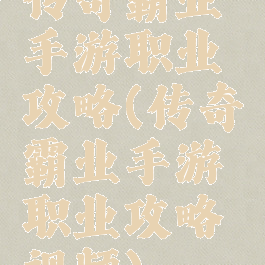 传奇霸业
手游职业
攻略(传奇
霸业手游
职业攻略
视频)